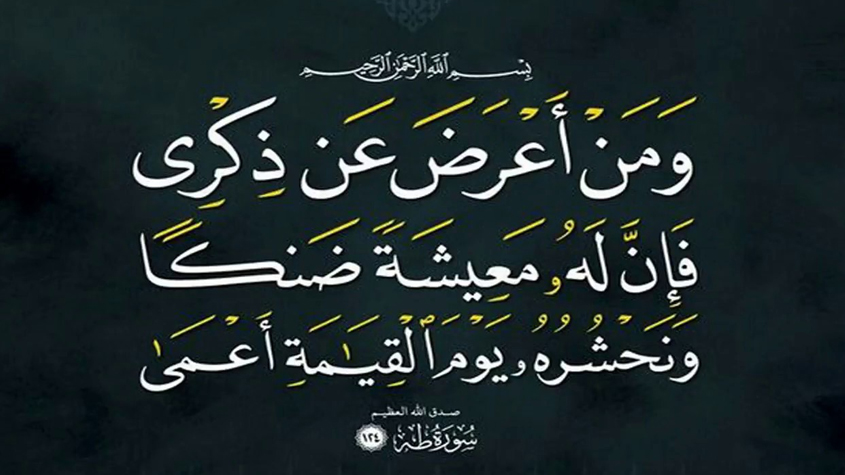 بِسْمِ ٱللَّهِ ٱلرَّحْمَٰنِ ٱلرَّحِيمِ
وَمَنْ أَعْرَضَ عَن ذِكْرِى
فَإِنَّ لَهُۥ مَعِيشَةً ضَنكًا
وَنَحْشُرُهُۥ يَوْمَ ٱلْقِيَٰمَةِ أَعْمَىٰ
صدق الله العظيم
سُورَةُ طه ١٢٤